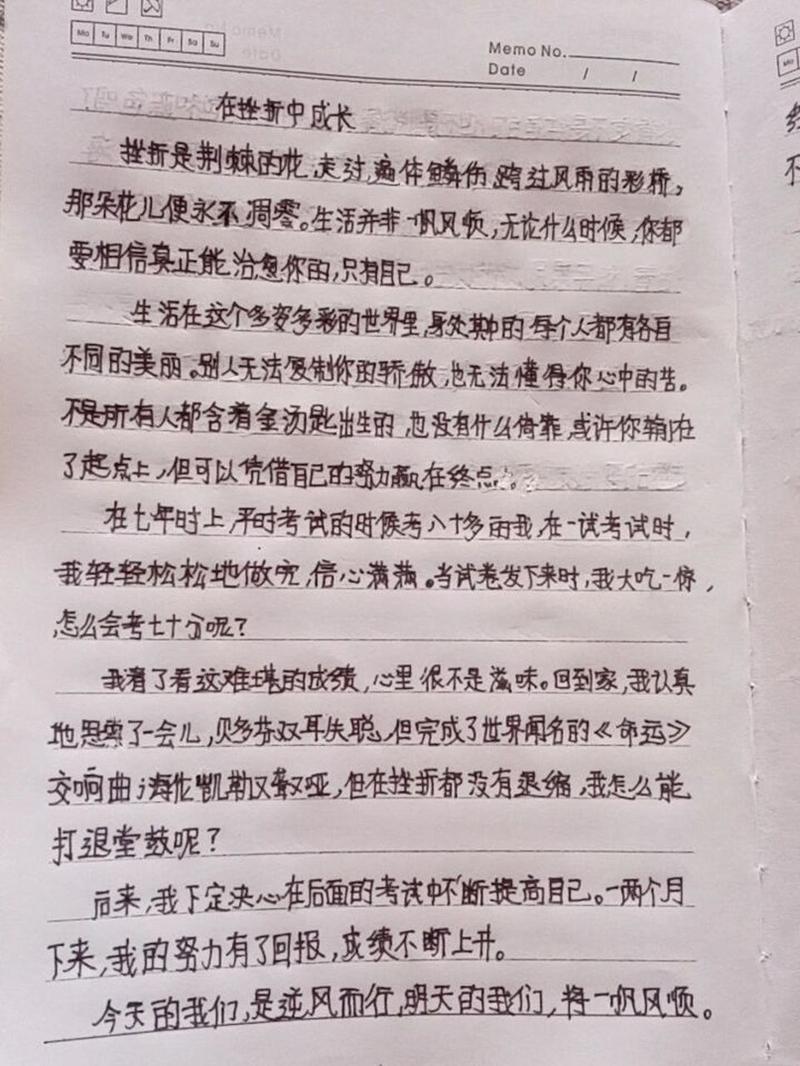 Mo Tu We Th Fr Sa Su
Memo No.
Date / /
在挫折中成长
挫折是荆棘的花,走过遍体鳞伤,跨过风雨的彩桥,
那朵花儿便永不凋零。生活并非一帆风顺,无论什么时候,你都
要相信真正能治愈你的,只有自己。
生活在这个多姿多彩的世界里,身处其中的每个人都有各自
不同的美丽。别人无法复制你的骄傲,也无法懂得你心中的苦。
不是所有人都含着金汤匙出生的,也没有什么倚靠,或许你输在
了起点上,但可以凭借自己的努力赢在终点。
在七年时上,平时考试的时候考八十多的我,在一试考试时,
我轻轻松松地做完,信心满满。当试卷发下来时,我大吃一惊,
怎么会考七十分呢?
我看了看这难堪的成绩,心里很不是滋味。回到家,我认真
地思索了一会儿,贝多芬双耳失聪,但完成了世界闻名的《命运》
交响曲;海伦凯勒又聋又哑,但在挫折都没有退缩,我怎么能
打退堂鼓呢?
后来,我下定决心在后面的考试中不断提高自己。一两个月
下来,我的努力有了回报,成绩不断上升。
今天的我们,是逆风而行,明天的我们,将一帆风顺。